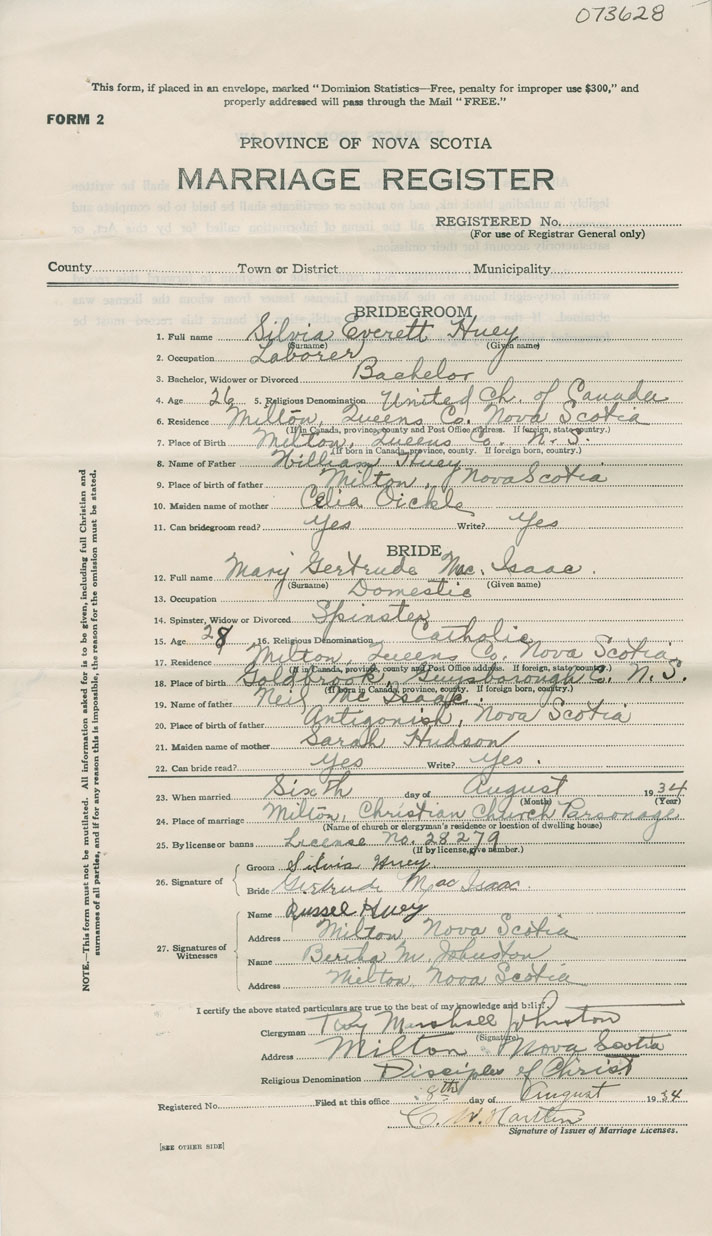 073628
This form, if placed in an envelope, marked "Dominion Statistics—Free, penalty for improper use $300," and
properly addressed will pass through the Mail "FREE."
FORM 2
PROVINCE OF NOVA SCOTIA
MARRIAGE REGISTER
REGISTERED No.
(For use of Registrar General only)
County Town or District Municipality
BRIDEGROOM
1. Full name Silvia Everett Huey
(Surname) (Given name)
2. Occupation Laborer
3. Bachelor, Widower or Divorced Bachelor
4. Age 26 5. Religious Denomination United Ch. of Canada
6. Residence Milton, Queens Co. Nova Scotia
(If in Canada, province, county and Post Office address. If foreign, state country.)
7. Place of Birth Milton, Queens Co. N.S.
(If born in Canada, province, county. If foreign born, country.)
8. Name of Father William Huey
9. Place of birth of father Milton, Nova Scotia
10. Maiden name of mother Celia Oickle
11. Can bridegroom read? Yes Write? Yes
BRIDE
12. Full name Mary Gertrude Mac. Isaac.
(Surname) (Given name)
13. Occupation Domestic
14. Spinster, Widow or Divorced Spinster
15. Age 28 16. Religious Denomination Catholic
17. Residence Milton, Queens Co. Nova Scotia
(If in Canada, province, county and Post Office address. If foreign, state country.)
18. Place of birth Goldbrook, Guysborough Co. N.S.
(If born in Canada, province, county. If foreign born, country.)
19. Name of father Neil Mc Isaac.
20. Place of birth of father Antigonish, Nova Scotia
21. Maiden name of mother Sarah Hudson
22. Can bride read? Yes Write? Yes.
23. When married Sixth day of August 1934
(Month) (Year)
24. Place of marriage Milton, Christian Church Parsonage
(Name of church or clergyman's residence or location of dwelling house)
25. By license or banns License No. 28279
(If by license, give number.)
26. Signature of Groom Silvia Huey
Bride Gertrude Mac Isaac.
27. Signatures of Witnesses
Name Russel Huey
Address Milton Nova Scotia
Name Bertha M. Johnston
Address Milton, Nova Scotia
I certify the above stated particulars are true to the best of my knowledge and belief
Clergyman Marshall Johnston
(Signature)
Address Milton Nova Scotia
Religious Denomination Disciples of Christ
Registered No. Filed at this office 8th day of August 1934
C. W.
Signature of Issuer of Marriage Licenses.
[SEE OTHER SIDE]
NOTE.—This form must not be mutilated. All information asked for is to be given, including full Christian and
surnames of all parties, and if for any reason this is impossible, the reason for the omission must be stated.